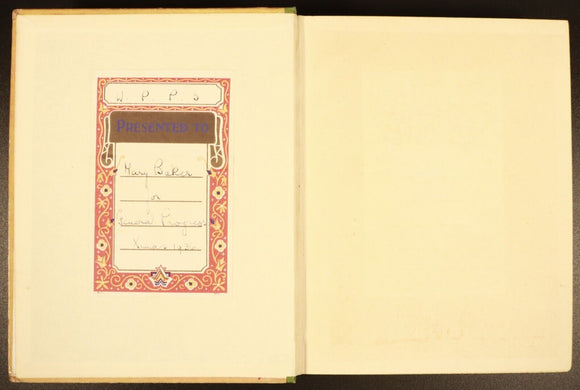 W P P S
PRESENTED TO
Mary Baker
for
General Progress
Xmas